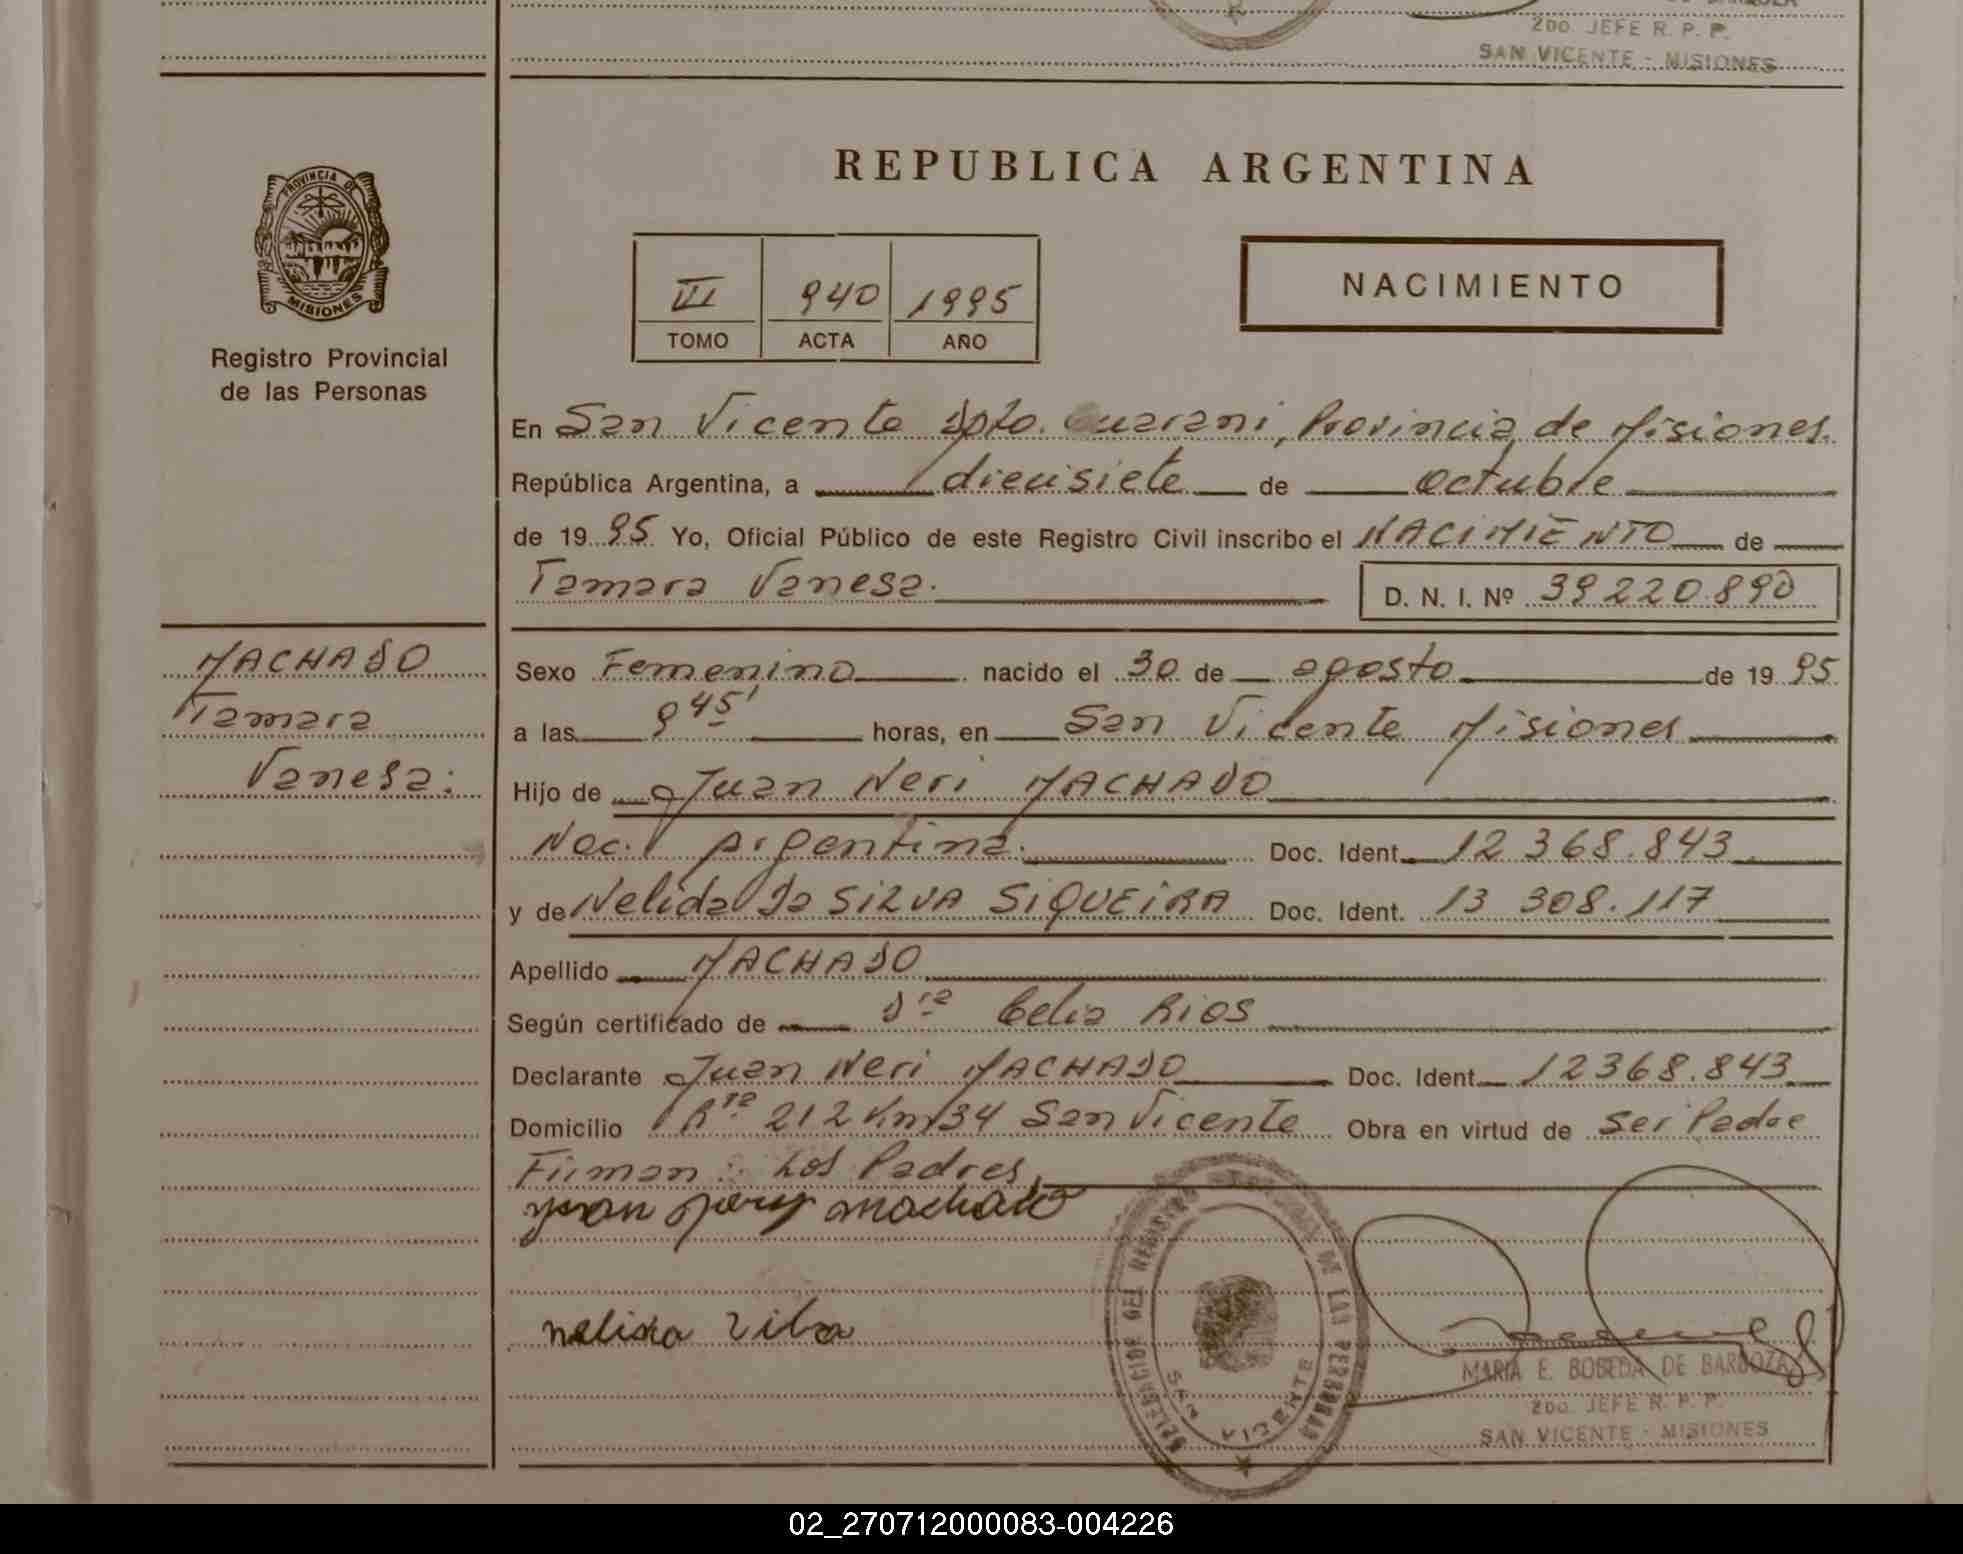 2do. JEFE R. P. P.
SAN VICENTE - MISIONES
PROVINCIA DE
MISIONES
Registro Provincial
de las Personas
REPUBLICA ARGENTINA
III 940 1995
TOMO ACTA AÑO
NACIMIENTO
En San Vicente Dpto. Guarani, Provincia de Misiones.
República Argentina, a diecisiete de octubre
de 19 95 Yo, Oficial Público de este Registro Civil inscribo el NACIMIENTO de
Tamara Vanesa. D. N. I. Nº 39220890
MACHADO
Tamara
Vanesa:
Sexo Femenino nacido el 30 de agosto de 19 95
a las 9 45' horas, en San Vicente Misiones
Hijo de Juan Neri MACHADO
Nac. Argentina. Doc. Ident. 12 368.843
y de Nelida Da SILVA SIQUEIRA Doc. Ident. 13 308.117
Apellido MACHADO
Según certificado de Dra Celia Rios
Declarante Juan Neri MACHADO Doc. Ident. 12368.843
Domicilio Rta 212 Km 34 San Vicente Obra en virtud de ser Padre
Firman: Los Padres
machado
nelida
DELEGACION DEL REGISTRO PROVINCIAL DE LAS PERSONAS
SAN VICENTE
MARIA E. BOBEDA DE BARBOZA
2do. JEFE R. P. P.
SAN VICENTE - MISIONES
02_270712000083-004226